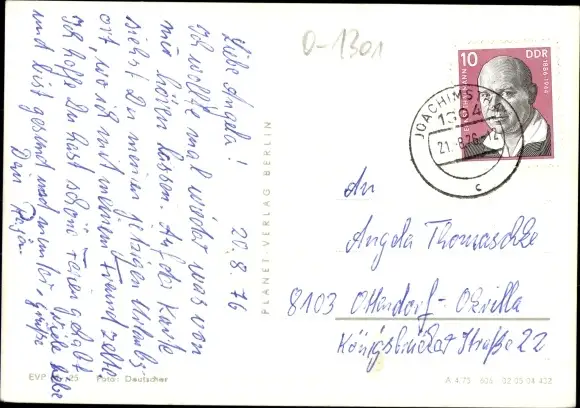 20.8.76
Liebe Angela!
Ich wollte mal wieder was von
mir hören lassen. Auf der Karte
siehst Du meinen jetzigen Urlaubs-
ort, wo ich mit meinem Freund zelte.
Ich hoffe Du hast schöne Ferien gehabt
und bist gesund und munter. Viele liebe
Grüße
Dein
O-1301
10
DDR
1886-1944
JOACHIMSTHAL
1304
21.-8.76-12
c
An
Angela Thomaschke
8103 Ottendorf-Okrilla
Königsbrücker Straße 22
PLANET-VERLAG BERLIN
EVP 25 Foto: Deutscher
A 4/75 02 05 04 432